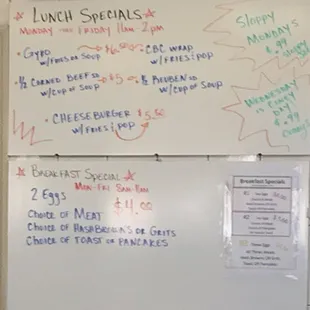 LUNCH SPECIALS
MONDAY FRIDAY 11am - 2pm
GYRO $6.50 CBC WRAP
W/FRIES OR SOUP W/FRIES & POP
1/2 CORNED BEEF $5 1/2 REUBEN
W/CUP OF SOUP W/CUP OF SOUP
CHEESEBURGER $5.50
W/FRIES & POP
SLOPPY
MONDAYS
$.99
WEDNESDAY
IS CONEY
DAY
$.99
BREAKFAST SPECIAL
MON-FRI 8am-11am
2 EGGS $4.00
CHOICE OF MEAT
CHOICE OF HASHBROWNS OR GRITS
CHOICE OF TOAST OR PANCAKES
Breakfast Specials